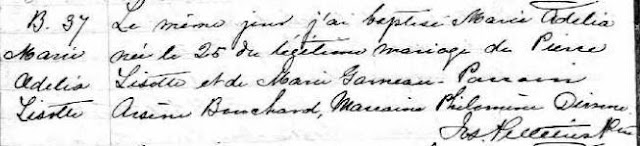 B. 37 Le même jour j'ai baptisé Marie Adelia
Marie née le 25 du légitime mariage de Pierre
Adelia Lisotte et de Marie Garneau - Parrain
Lisotte Arsène Bouchard, Marraine Philomène Dionne
Jos. Pelletier Ptre